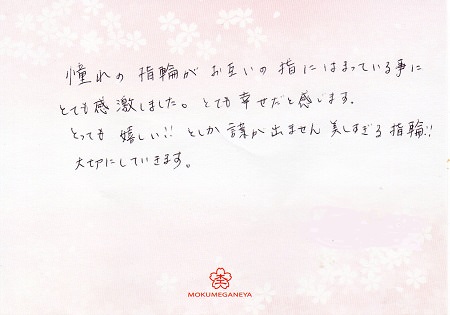 憧れの指輪がお互いの指にはまっている事に
とても感激しました。とても幸せだと感じます。
とっても嬉しい!!としか言葉が出ません 美しすぎる指輪!!
大切にしていきます。
MOKUMEGANEYA